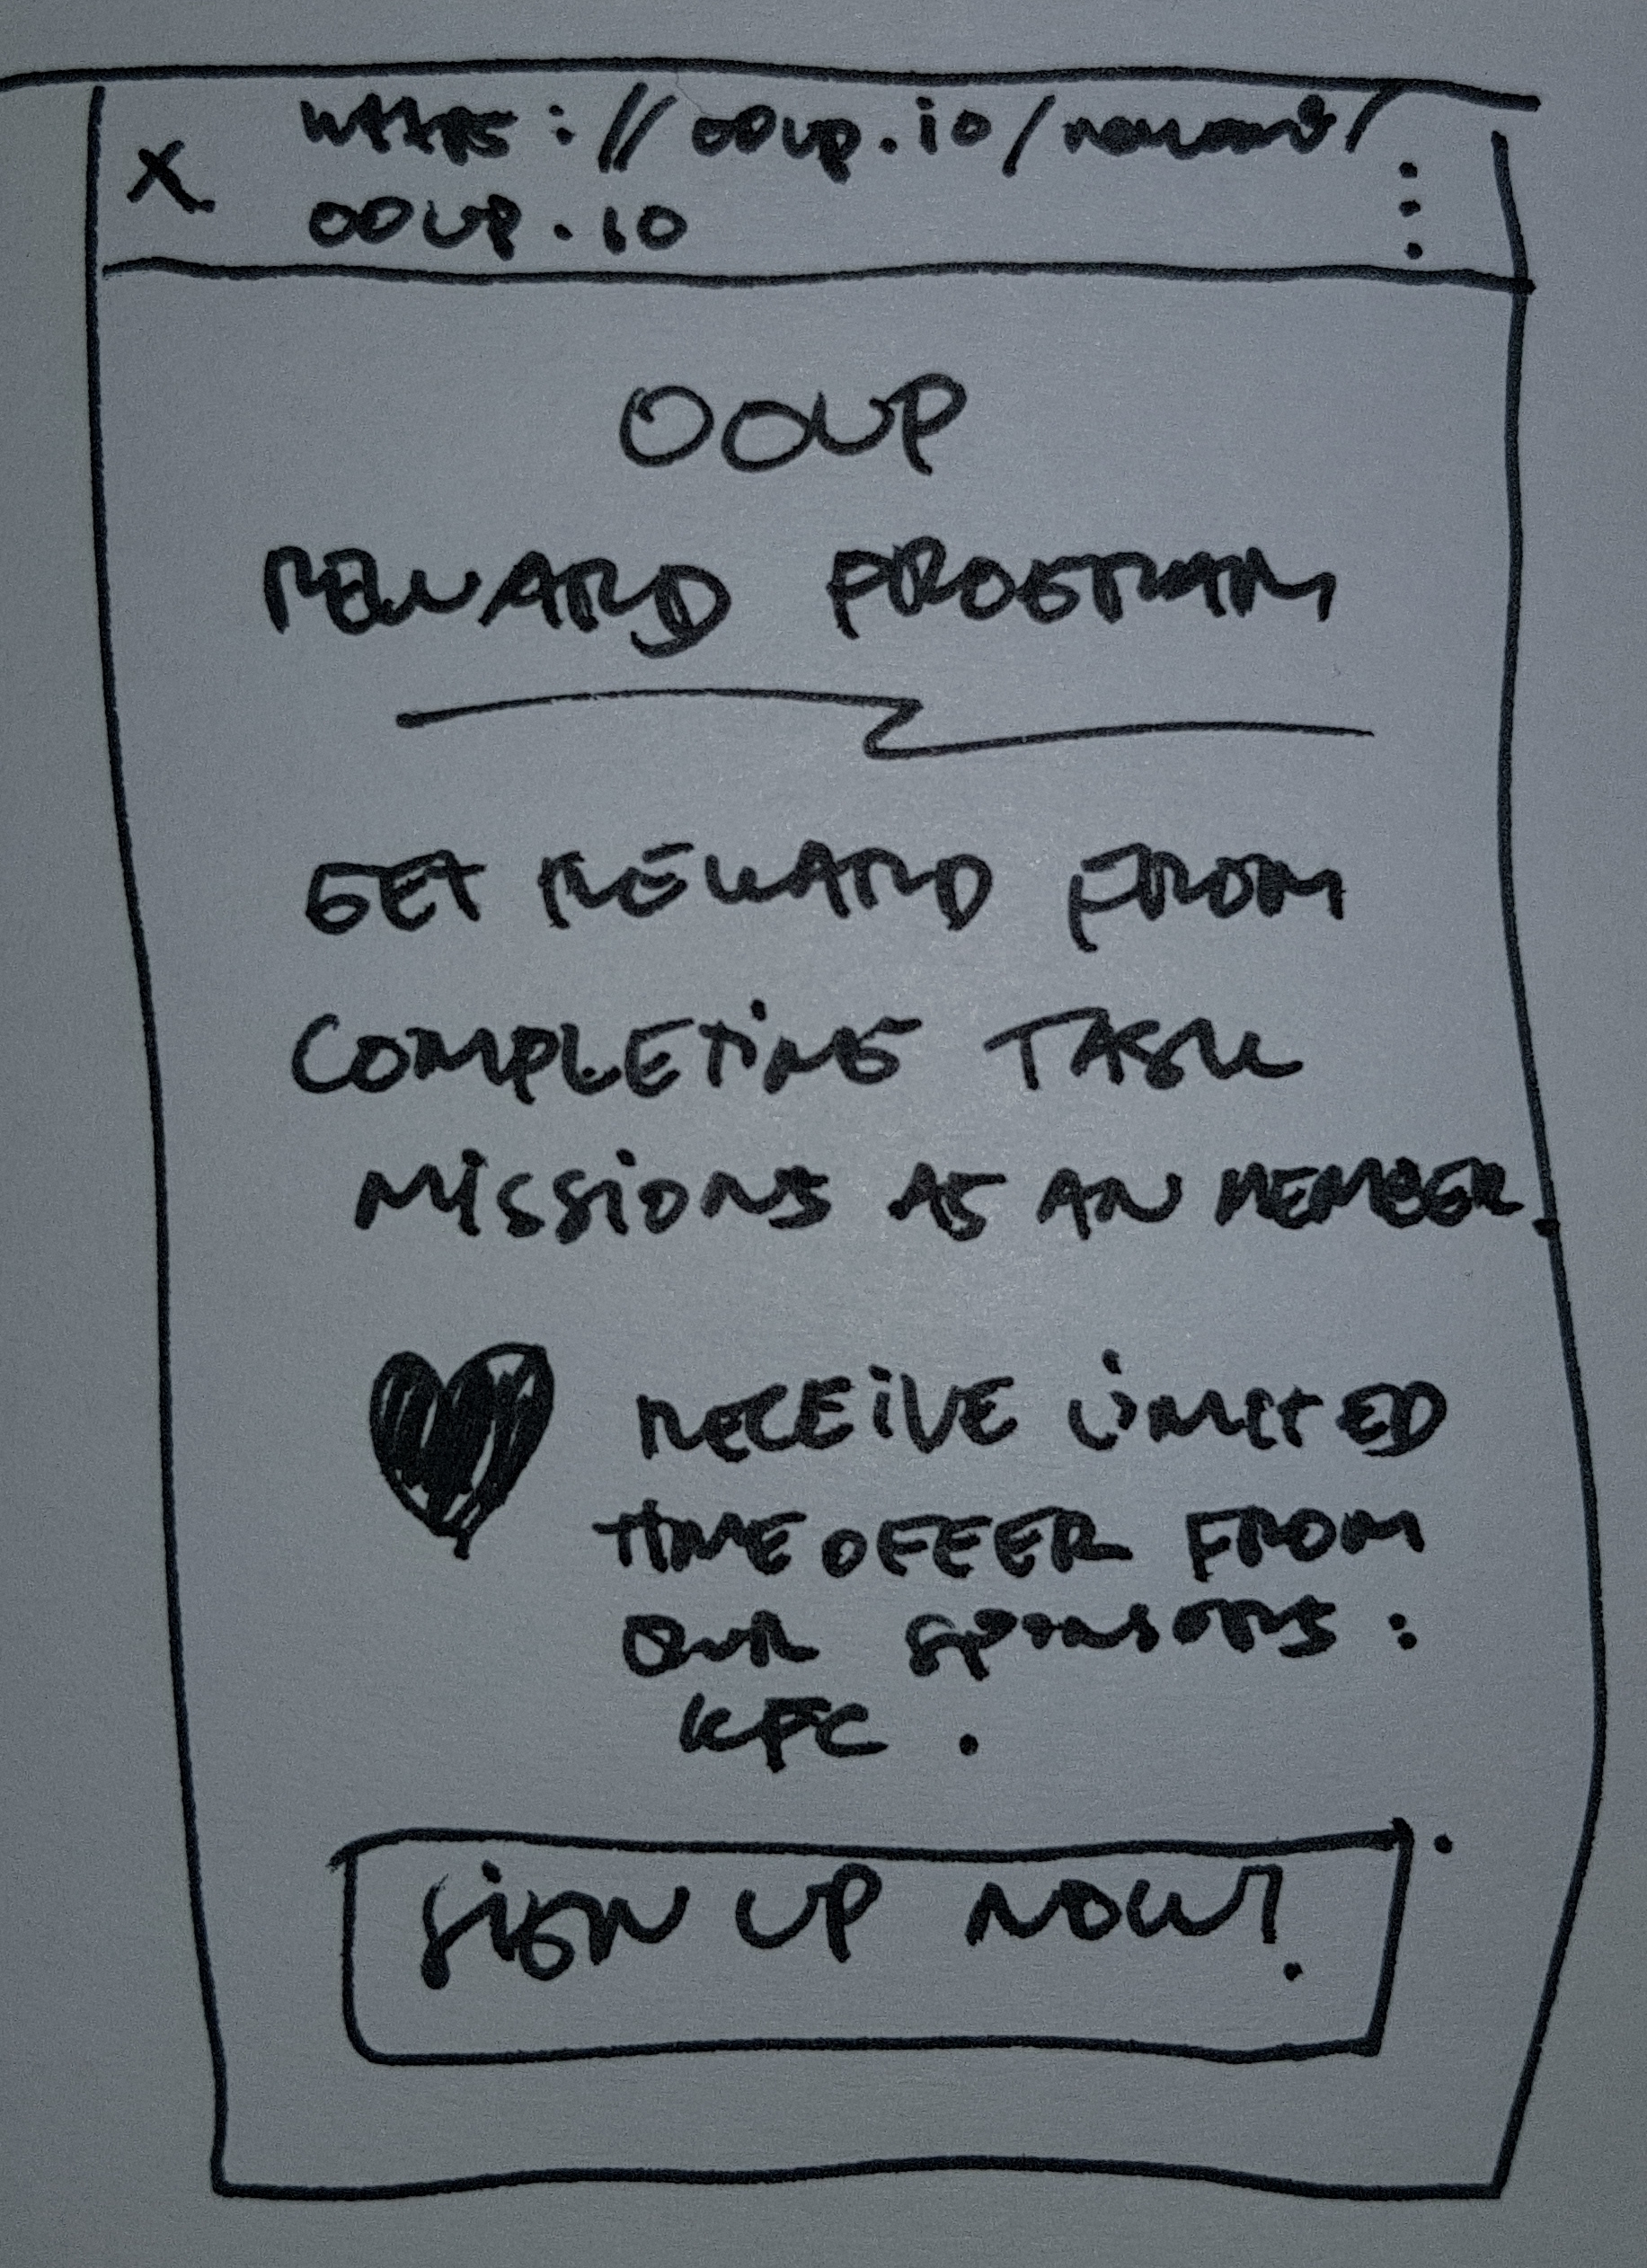 X
https://ooup.io/reward/
OOUP.IO
OOUP
REWARD PROGRAM
GET REWARD FROM
COMPLETING TASK
MISSIONS AS AN MEMBER.
RECEIVE LIMITED
TIME OFFER FROM
OUR SPONSORS:
KFC.
SIGN UP NOW!